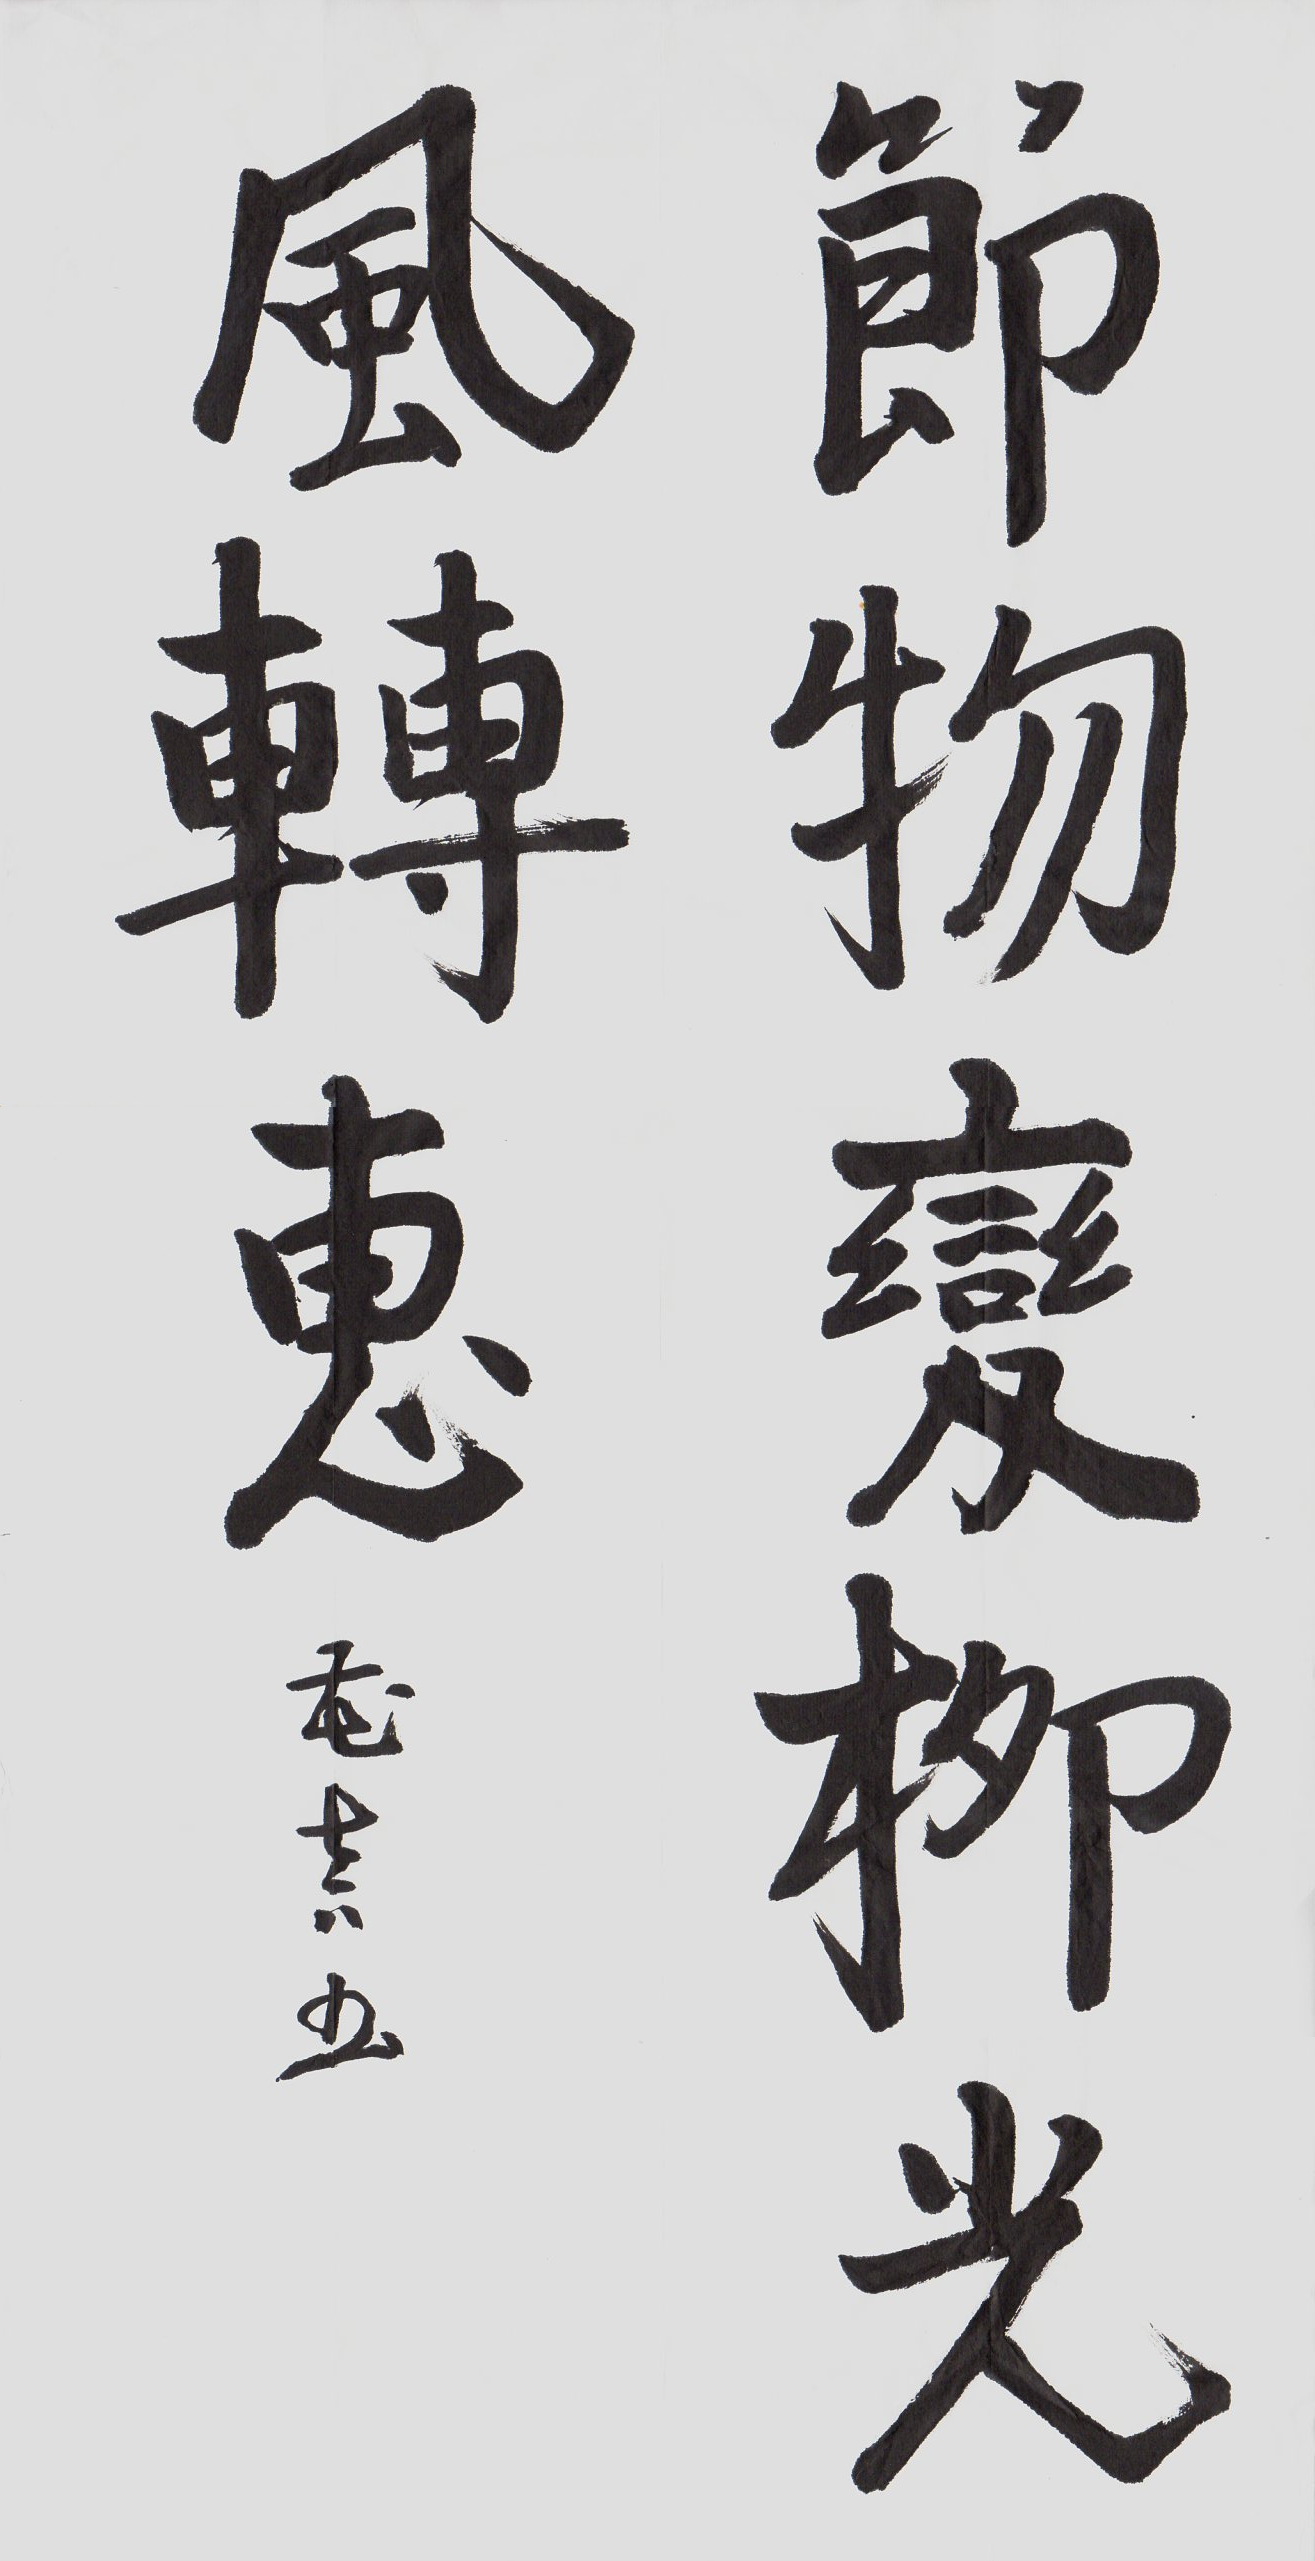 節物變柳光
風轉惠